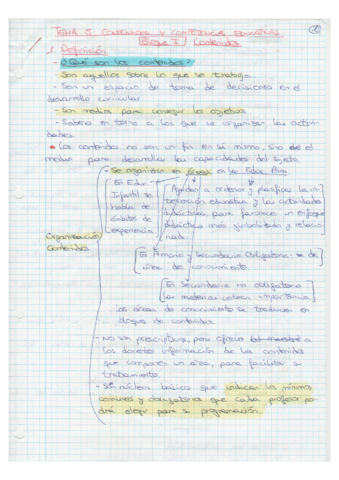 TEMA 5. CONTENIDOS Y COMPETENCIAS EDUCATIVAS
(Bloque I) Contenidos
1. Definición
- ¿Qué son los contenidos?
- Son aquellos sobre lo que se trabaja.
- Son un espacio de toma de decisiones en el
desarrollo curricular
- Son medios para conseguir los objetivos
- Saberes en torno a los que se organizan las activi-
dades.
• Los contenidos no son un fin en sí mismo, sino el
medio para desarrollar las capacidades del sujeto.
- Se organizan en áreas en la Educ. Prim
En Educ
Infantil se
habla de
ámbitos de
experiencia
Ayudan a ordenar y planificar la in-
tervención educativa y las actividades
didácticas para favorecer un enfoque
didáctico más globalizado y relacio-
nado.
Organización
Contenidos
En Primaria y Secundaria Obligatoria se de
área de conocimiento.
En Secundaria no obligatoria
las materias cobran importancia
Las áreas de conocimiento se traducen en
bloques de contenidos.
- No son prescriptivos, para ofrecer
a los docentes información de los contenidos
que componen un área, para facilitar su
tratamiento.
- Son núcleos básicos que indican los mínimos
comunes y obligatorios que cada profesor po-
drá elegir para su programación.